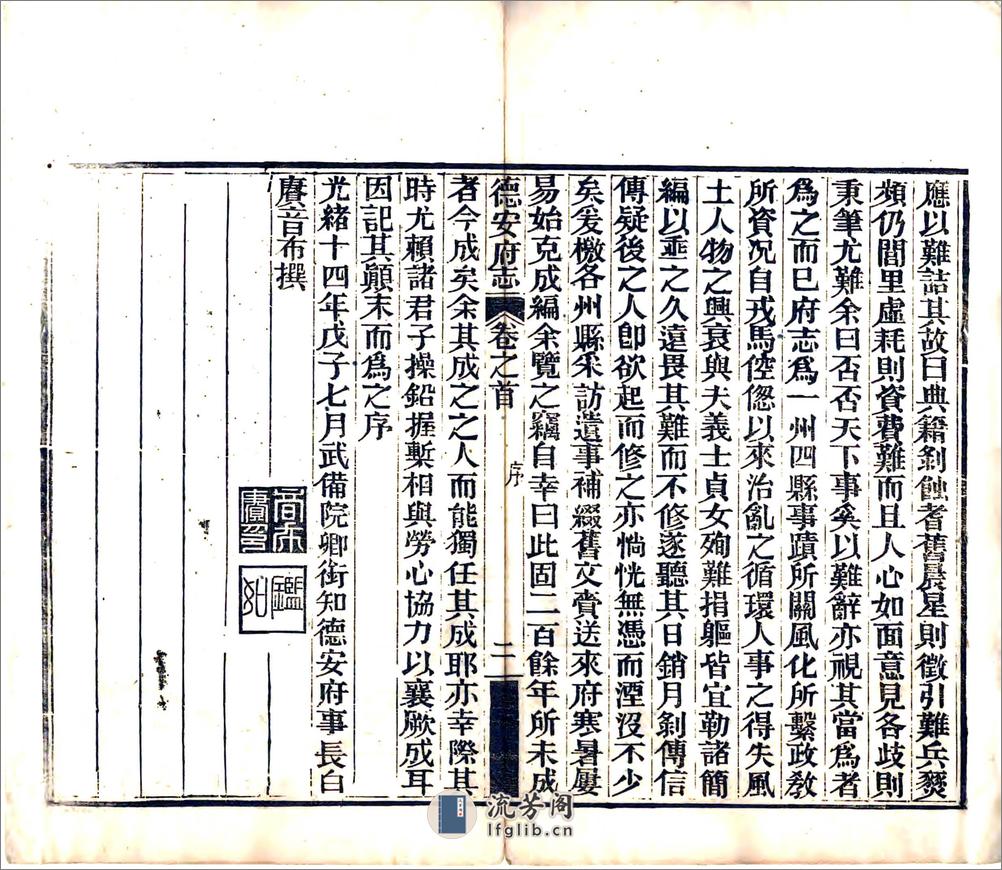 應以難詰其故曰典籍剝蝕耆舊晨星則徵引難兵燹
頻仍閭里虛耗則資費難而且人心如面意見各歧則
秉筆尤難余曰否否天下事奚以難辭亦視其當爲者
爲之而已府志爲一州四縣事蹟所關風化所繫政教
所資况自戎馬倥傯以來治亂之循環人事之得失風
土人物之興衰與夫義士貞女殉難捐軀皆宜勒諸簡
編以垂之久遠畏其難而不修遂聽其日銷月剝傳信
傳疑後之人卽欲起而修之亦惝恍無憑而湮沒不少
矣爰檄各州縣采訪遺事補綴舊文賫送來府寒暑屢
易始克成編余覽之竊自幸曰此固二百餘年所未成
德安府志
卷之首
序
二
者今成矣余其成之之人而能獨任其成耶亦幸際其
時尤賴諸君子操鉛握槧相與勞心協力以襄厥成耳
因記其顚末而爲之序
光緒十四年戊子七月武備院卿銜知德安府事長白
賡音布撰
音布
賡印
流芳阁
lfglib.cn